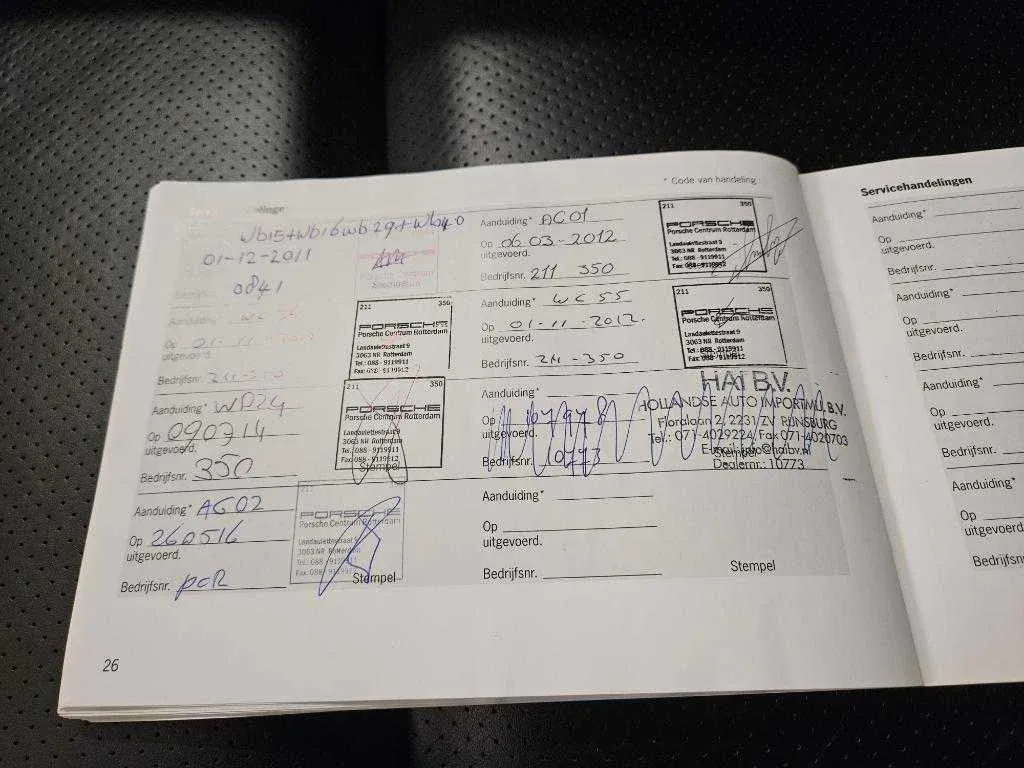 * Code van handeling
Wb15+Wb16Wb29+Wb40
01-12-2011
0841
Aanduiding* WC 55
Op 01-11-2012
uitgevoerd.
Bedrijfsnr. 211-350
211 350
PORSCHE
Porsche Centrum Rotterdam
Landauletteestraat 9
3063 NR Rotterdam
Tel.: 088 - 9119911
Fax: 088 - 9119912
Aanduiding* WD24
Op 090714
uitgevoerd.
Bedrijfsnr. 350
211 350
PORSCHE
Porsche Centrum Rotterdam
Landaulettestraat 9
3063 NR Rotterdam
Tel.: 088 - 9119911
Fax: 088 - 9119912
Stempel
Aanduiding* AG02
Op 260516
uitgevoerd.
Bedrijfsnr. pcR
211
PORSCHE
Porsche Centrum Rotterdam
Landaulettestraat 9
3063 NR Rotterdam
Tel.: 088 - 9119911
Fax: 088 - 9119912
Stempel
Aanduiding* AG01
Op 06 03-2012
uitgevoerd.
Bedrijfsnr. 211 350
211 350
PORSCHE
Porsche Centrum Rotterdam
Landaulettestraat 9
3063 NR Rotterdam
Tel.: 088 - 9119911
Fax: 088 - 9119912
Aanduiding* WC 55
Op 01-11-2012.
uitgevoerd.
Bedrijfsnr. 211-350
211 350
PORSCHE
Porsche Centrum Rotterdam
Landaulettestraat 9
3063 NR Rotterdam
Tel.: 088 - 9119911
Fax: 088 - 9119912
Aanduiding*
Op
uitgevoerd.
Bedrijfsnr. 10773
HAI B.V.
HOLLANDSE AUTO IMPORTMIJ. B.V.
Floralaan 2, 2231 ZV RIJNSBURG
Tel.: 071-4029224, Fax 071-4020703
E-mail: info@haibv.nl
Stempel
Dealernr.: 10773
Aanduiding*
Op
uitgevoerd.
Bedrijfsnr.
Stempel
26
Servicehandelingen
Aanduiding*
Op
uitgevoerd.
Bedrijfsnr.
Aanduiding*
Op
uitgevoerd.
Bedrijfsnr.
Aanduiding*
Op
uitgevoerd.
Bedrijfsnr.
Aanduiding*
Op
uitgevoerd.
Bedrijfsn